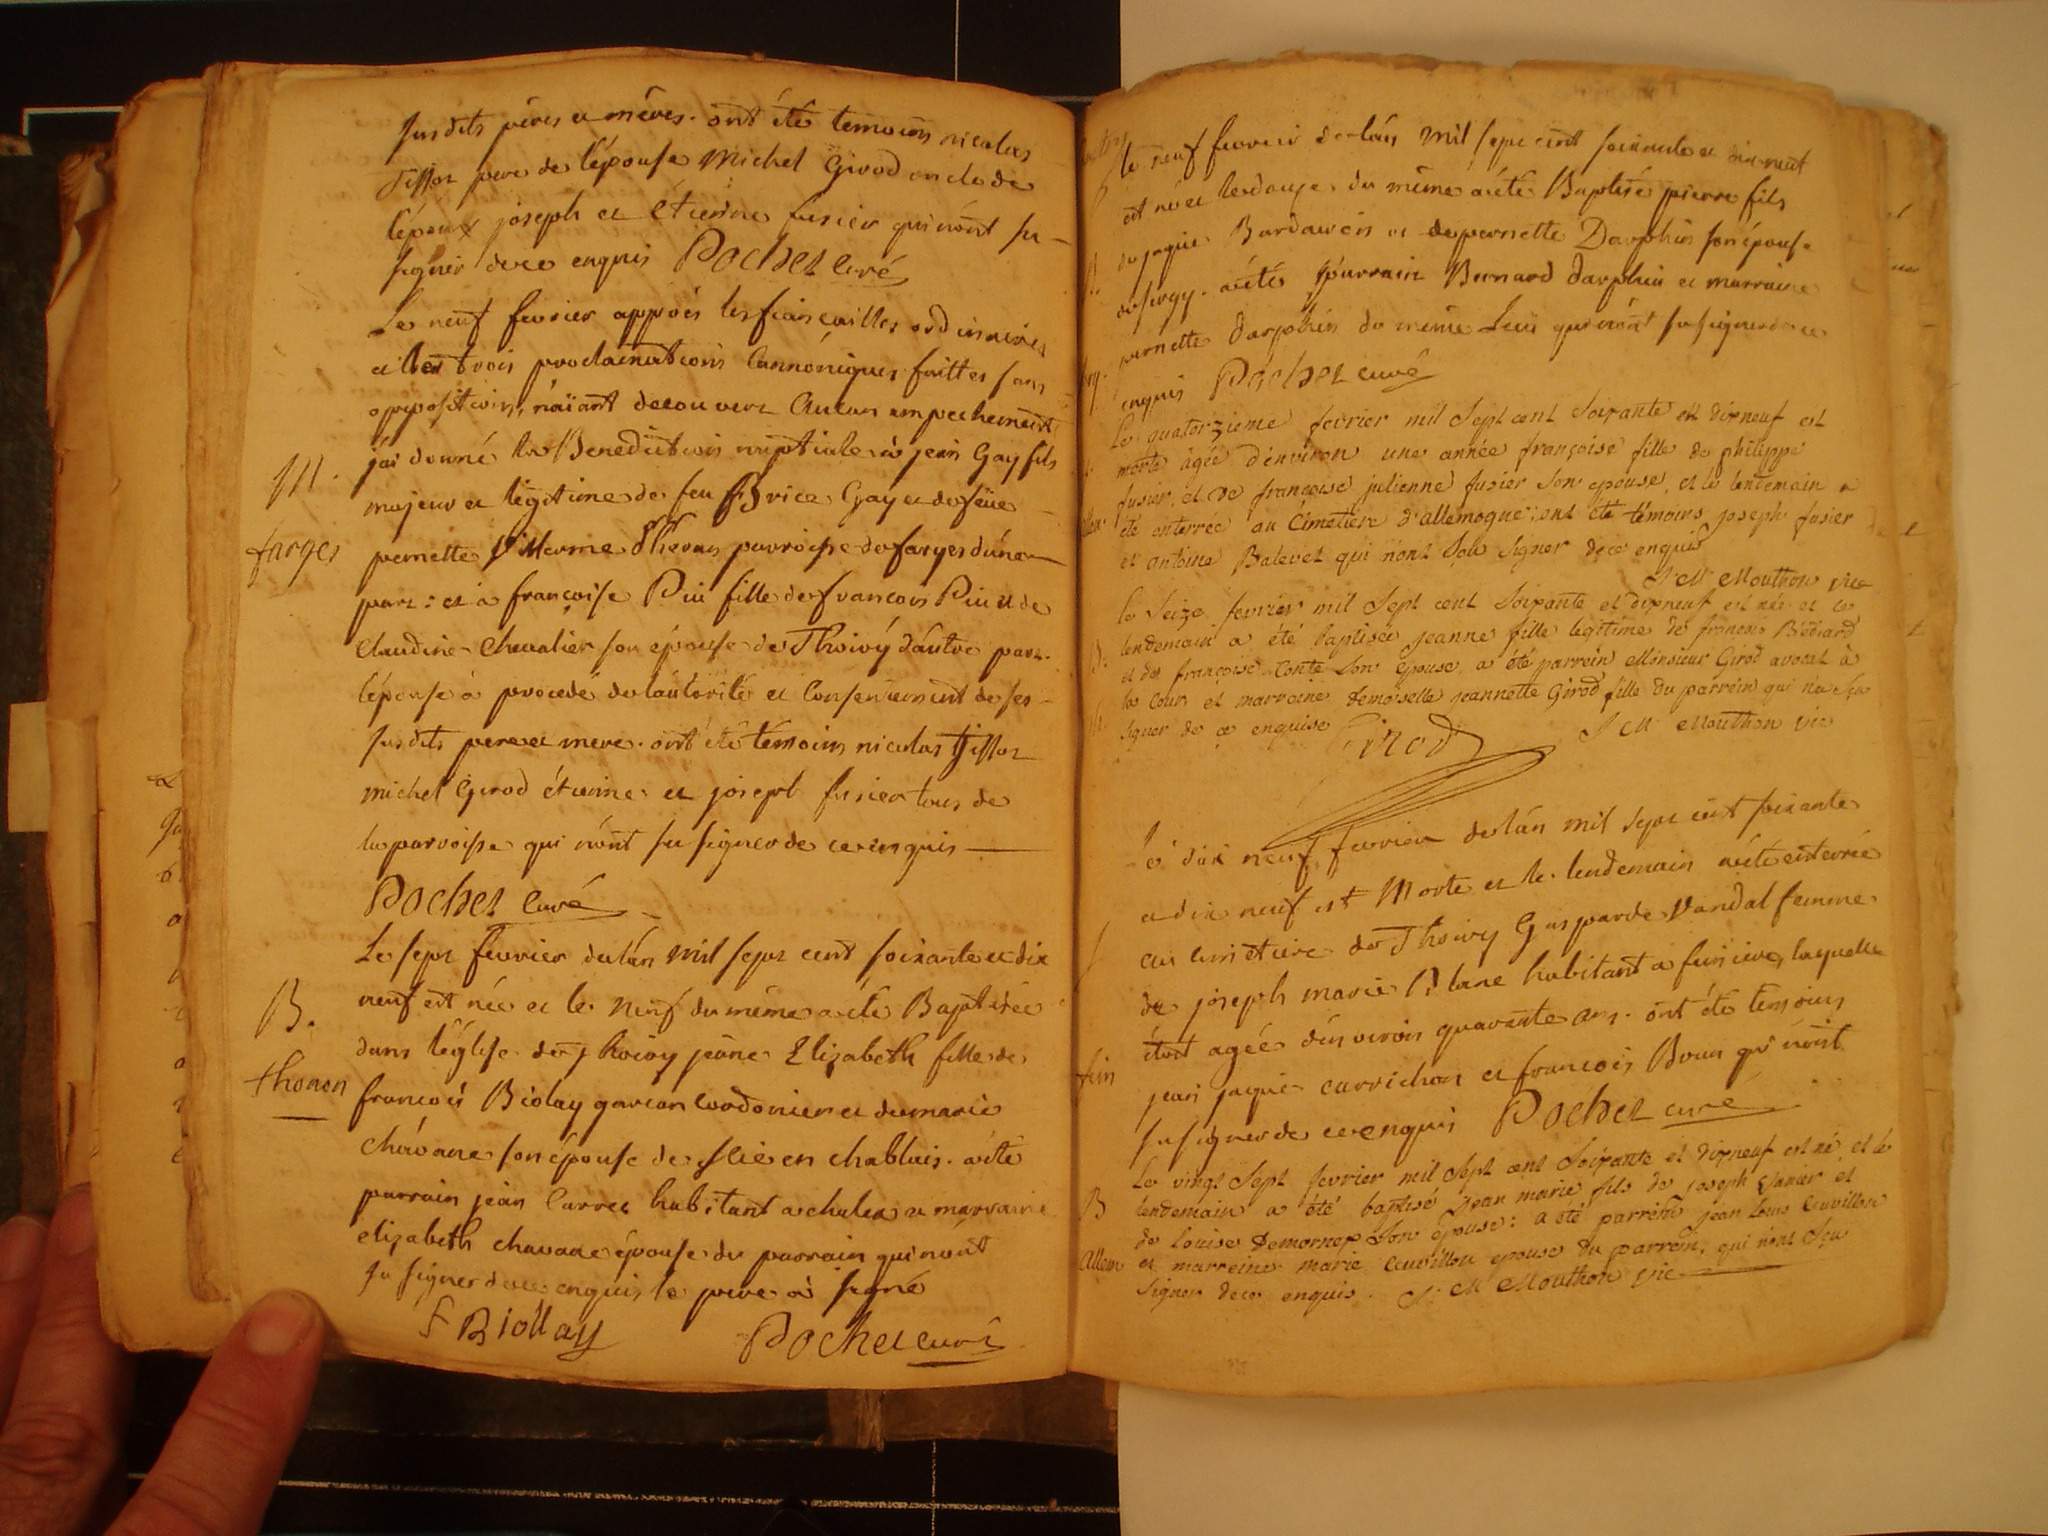 susdits pères et mères. ont été temoins nicolas
Tissot pere de l'épouse Michel Girod oncle de
l'époux joseph et étienne fusier qui n'ont su
signer de ce enquis Pochet curé
Le neuf fevrier apprès les fiançailles ordinaires
et les trois proclamations Cannoniques faittes sans
opposition, n'aïant decouvert Aucun empechement
M.
j'ai donné la Benediction nuptiale à jean Gay fils
majeur et légitime de feu Brice Gay et de feüe
farges
pernette parroisse de farges d'une
part: et à françoise Piu fille de françois Piu et de
Claudine Chevalier son épouse de Thoiry d'autre part.
l'épouse à procedé de l'autorité et Consentement de ses
susdits pere et mere. ont été témoins nicolas tissot
michel Girod étienne et joseph fusier tous de
la parroisse qui n'ont su signer de ce enquis
Pochet Curé
Le sept fevrier de l'an mil sept cent soixante et dix
neuf est née et le neuf du même a été Baptisée
B.
dans l'église de thoiry jeãne Elizabeth fille de
thonon
françois Biolay garçon cordonier et de marie
chavane son épouse de en chablais. a été
parrain jean Carret habitant a et marraine
elizabeth chavane épouse du parrain qui n'ont
su signer de ce enquis le pere à signé
F Biollay Pochet curé
le neuf fevrier de l'an mil sept cent soixante et dix neuf
est né et le douze du même a été Baptisé pierre fils
de jaque et de pernette Darphin son épouse
de sergy. a été parrain Bernard darphin et marraine
pernette darphin du même Lieu qui n'ont su signer de ce
enquis Pochet curé
Le quatorzieme fevrier mil Sept cent Soixante et dixneuf est
morte agée d'environ une année françoise fille de philippe
fusier, et de françoise julienne fusier Son epouse, et le lendemain a
été enterrée au Cimetiere d'allemogne; ont été témoins joseph fusier
et antoine Balevet qui n'ont Sçu Signer de ce enquis
J. M. Mouthon vic
le Seize fevrier mil Sept cent Soixante et dixneuf est née et le
B.
lendemain a été baptisée jeanne fille legitime de francois
et de françoise Conte Son épouse, a été parrein Monsieur Girod avocat à
la Cour et marraine Demoiselle jeannette Girod fille du parrein qui n'a Sçu
signer de ce enquise Girod J M Mouthon vic
Le dix neuf fevrier de l'an mil sept cent soixante
et dix neuf est Morte et le lendemain a été enterrée
au cimetiere de Thoiry Gasparde Vandal femme
de joseph marie habitant a fenieres, laquelle
étoit agée d'environ quarante ans. ont été temoins
fen
jean jaque et françois Brun qui n'ont
su signer de ce enquis Pochet curé
Le vingt Sept fevrier mil Sept cent Soixante et dixneuf est né, et le
B
lendemain a été baptisé Jean marie fils de joseph et
de Louise Son épouse: a été parrein jean Louis Cuvillon
Allem
et marreine marie Cuvillon epouse du parrein, qui n'ont Sçu
Signer de ce enquis. J. M Mouthon vic